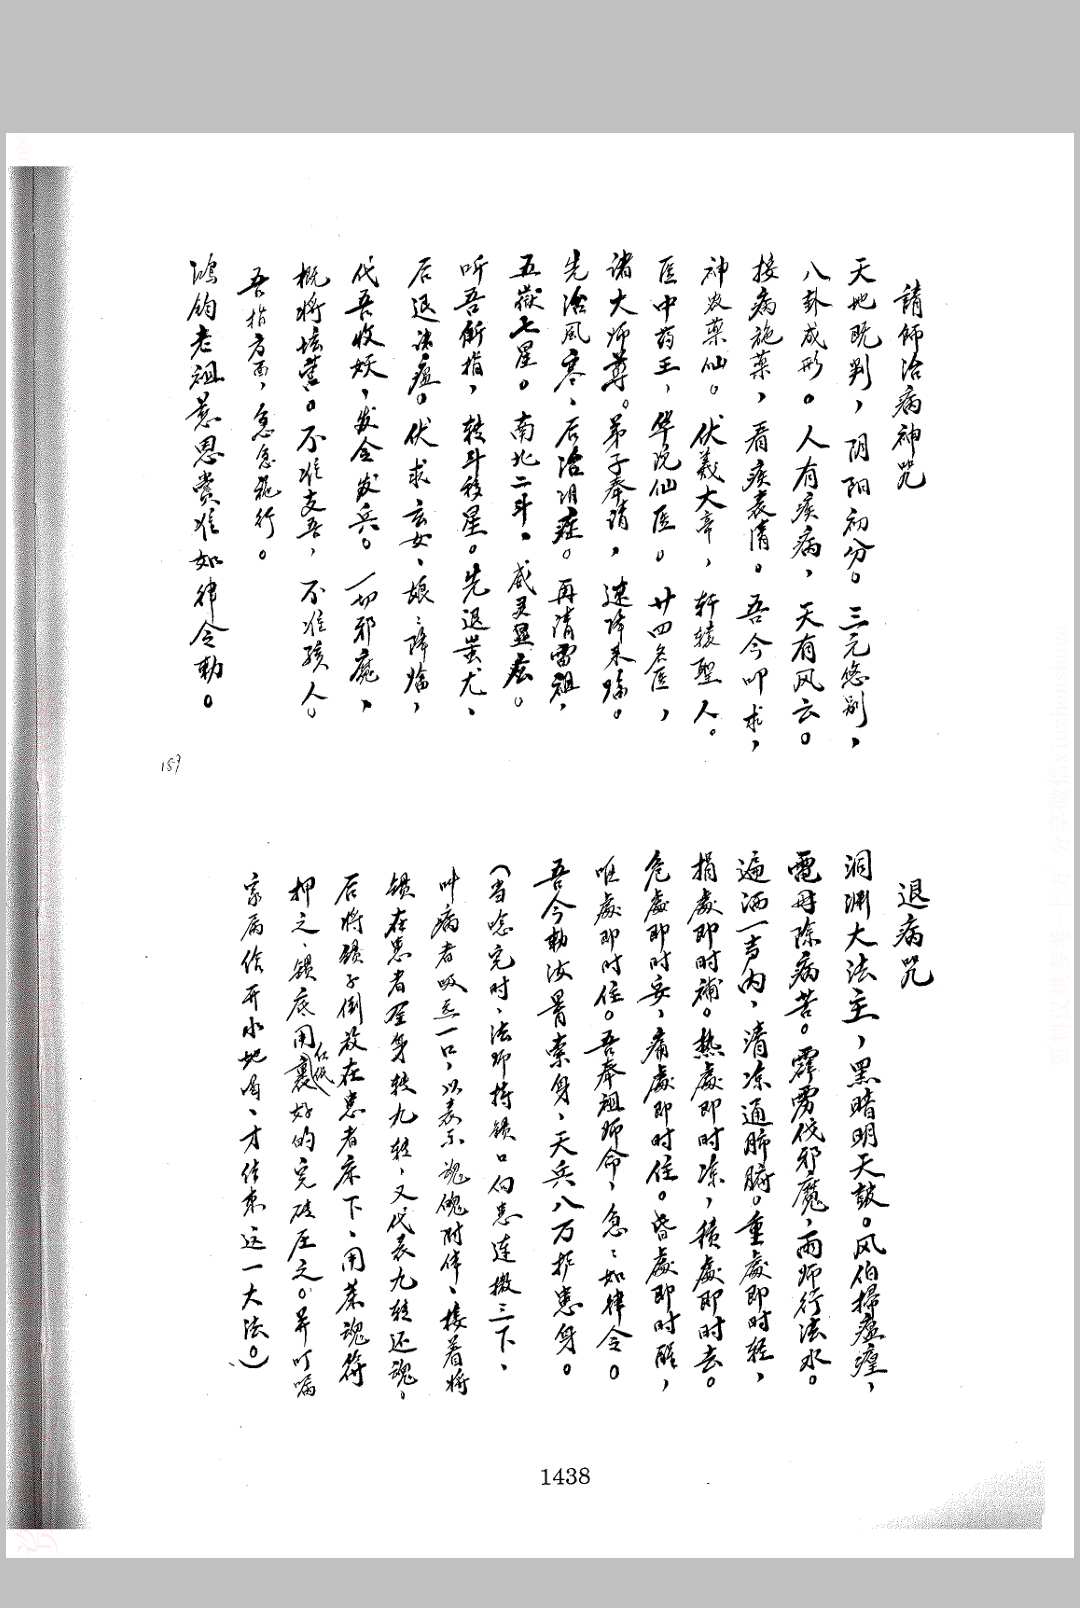 請師治病神咒
天地既判，阴阳初分。三元悠别，
八卦成形。人有疾病，天有风云。
按病施菜，看疾表情。吾今叩求，
神农菜仙。伏羲大帝，轩辕聖人。
医中药王，华陀仙医。廿四名医，
诸大师尊。弟子奉请，速降来临。
先治风寒、后治阴症。再清雷祖，
五嶽七星。南北二斗。威灵显应。
听吾所指，转斗移星。先退蚩尤、
后退诸瘟。伏求玄女、娘、降临，
代吾收妖、发令发兵。一切邪魔、
概将坛营。不准支吾，不准骇人。
吾指方面，急急施行。
鴻鈞老祖慈恩赏准如律令勅。
159
退病咒
洞渊大法主，黑暗明天鼓。风伯掃瘟瘽，
電母除病苦。霹雳伐邪魔，雨师行法水。
遍洒一声内，清凉通肺腑。重處即时轻，
损處即时補。热處即时凉，積處即时去。
危處即时妥，痛處即时住。昏處即时醒，
吐處即时住。吾奉祖师命，急、如律令。
吾今勅汝骨索身、天兵八万护患身。
（当唸完时、法师持鎖口向患連撒三下、
叫病者吸气一口，以表示魂魄附体、接着将
锁在患者全身转九转，又代表九转还魂。
后将锁子倒放在患者床下、用 魂符
押之、锁底用红纸裏好的 压之。并叮嘱
家属给开水地 、才结束这一大法。）
1438